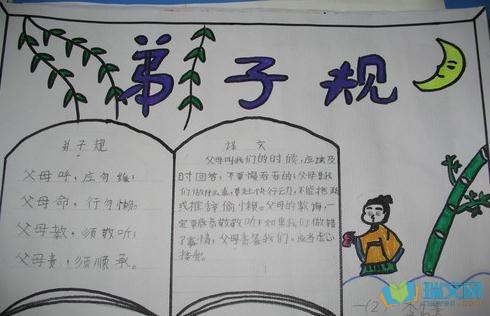 弟子规
弟子规
父母叫，应勿缓；
父母命，行勿懒。
父母教，须敬听；
父母责，须顺承。
译文
父母叫我们的时候，应该及
时回答，不要慢吞吞的；父母要我
们做什么事，要赶快行动，不能拖延
或推辞偷懒。父母的教诲，一
定要恭恭敬敬听；如果我们做错
了事情，父母责备我们，应当虚心
接受。
一(2)
瑞文网